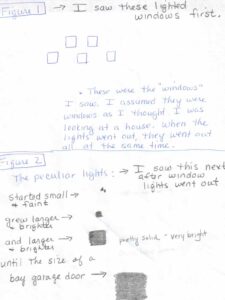 Figure 1 → I saw these lighted
windows first.
• These were the "windows"
I saw. I assumed they were
windows as I thought I was
looking at a house. When the
lights went out, they went out
all at the same time.
Figure 2
The peculiar lights: → I saw this next
after window
lights went out
Started small →
& faint
grew larger →
& brighter
and larger →
& brighter
pretty solid - very bright
until the size of a
bay garage door →